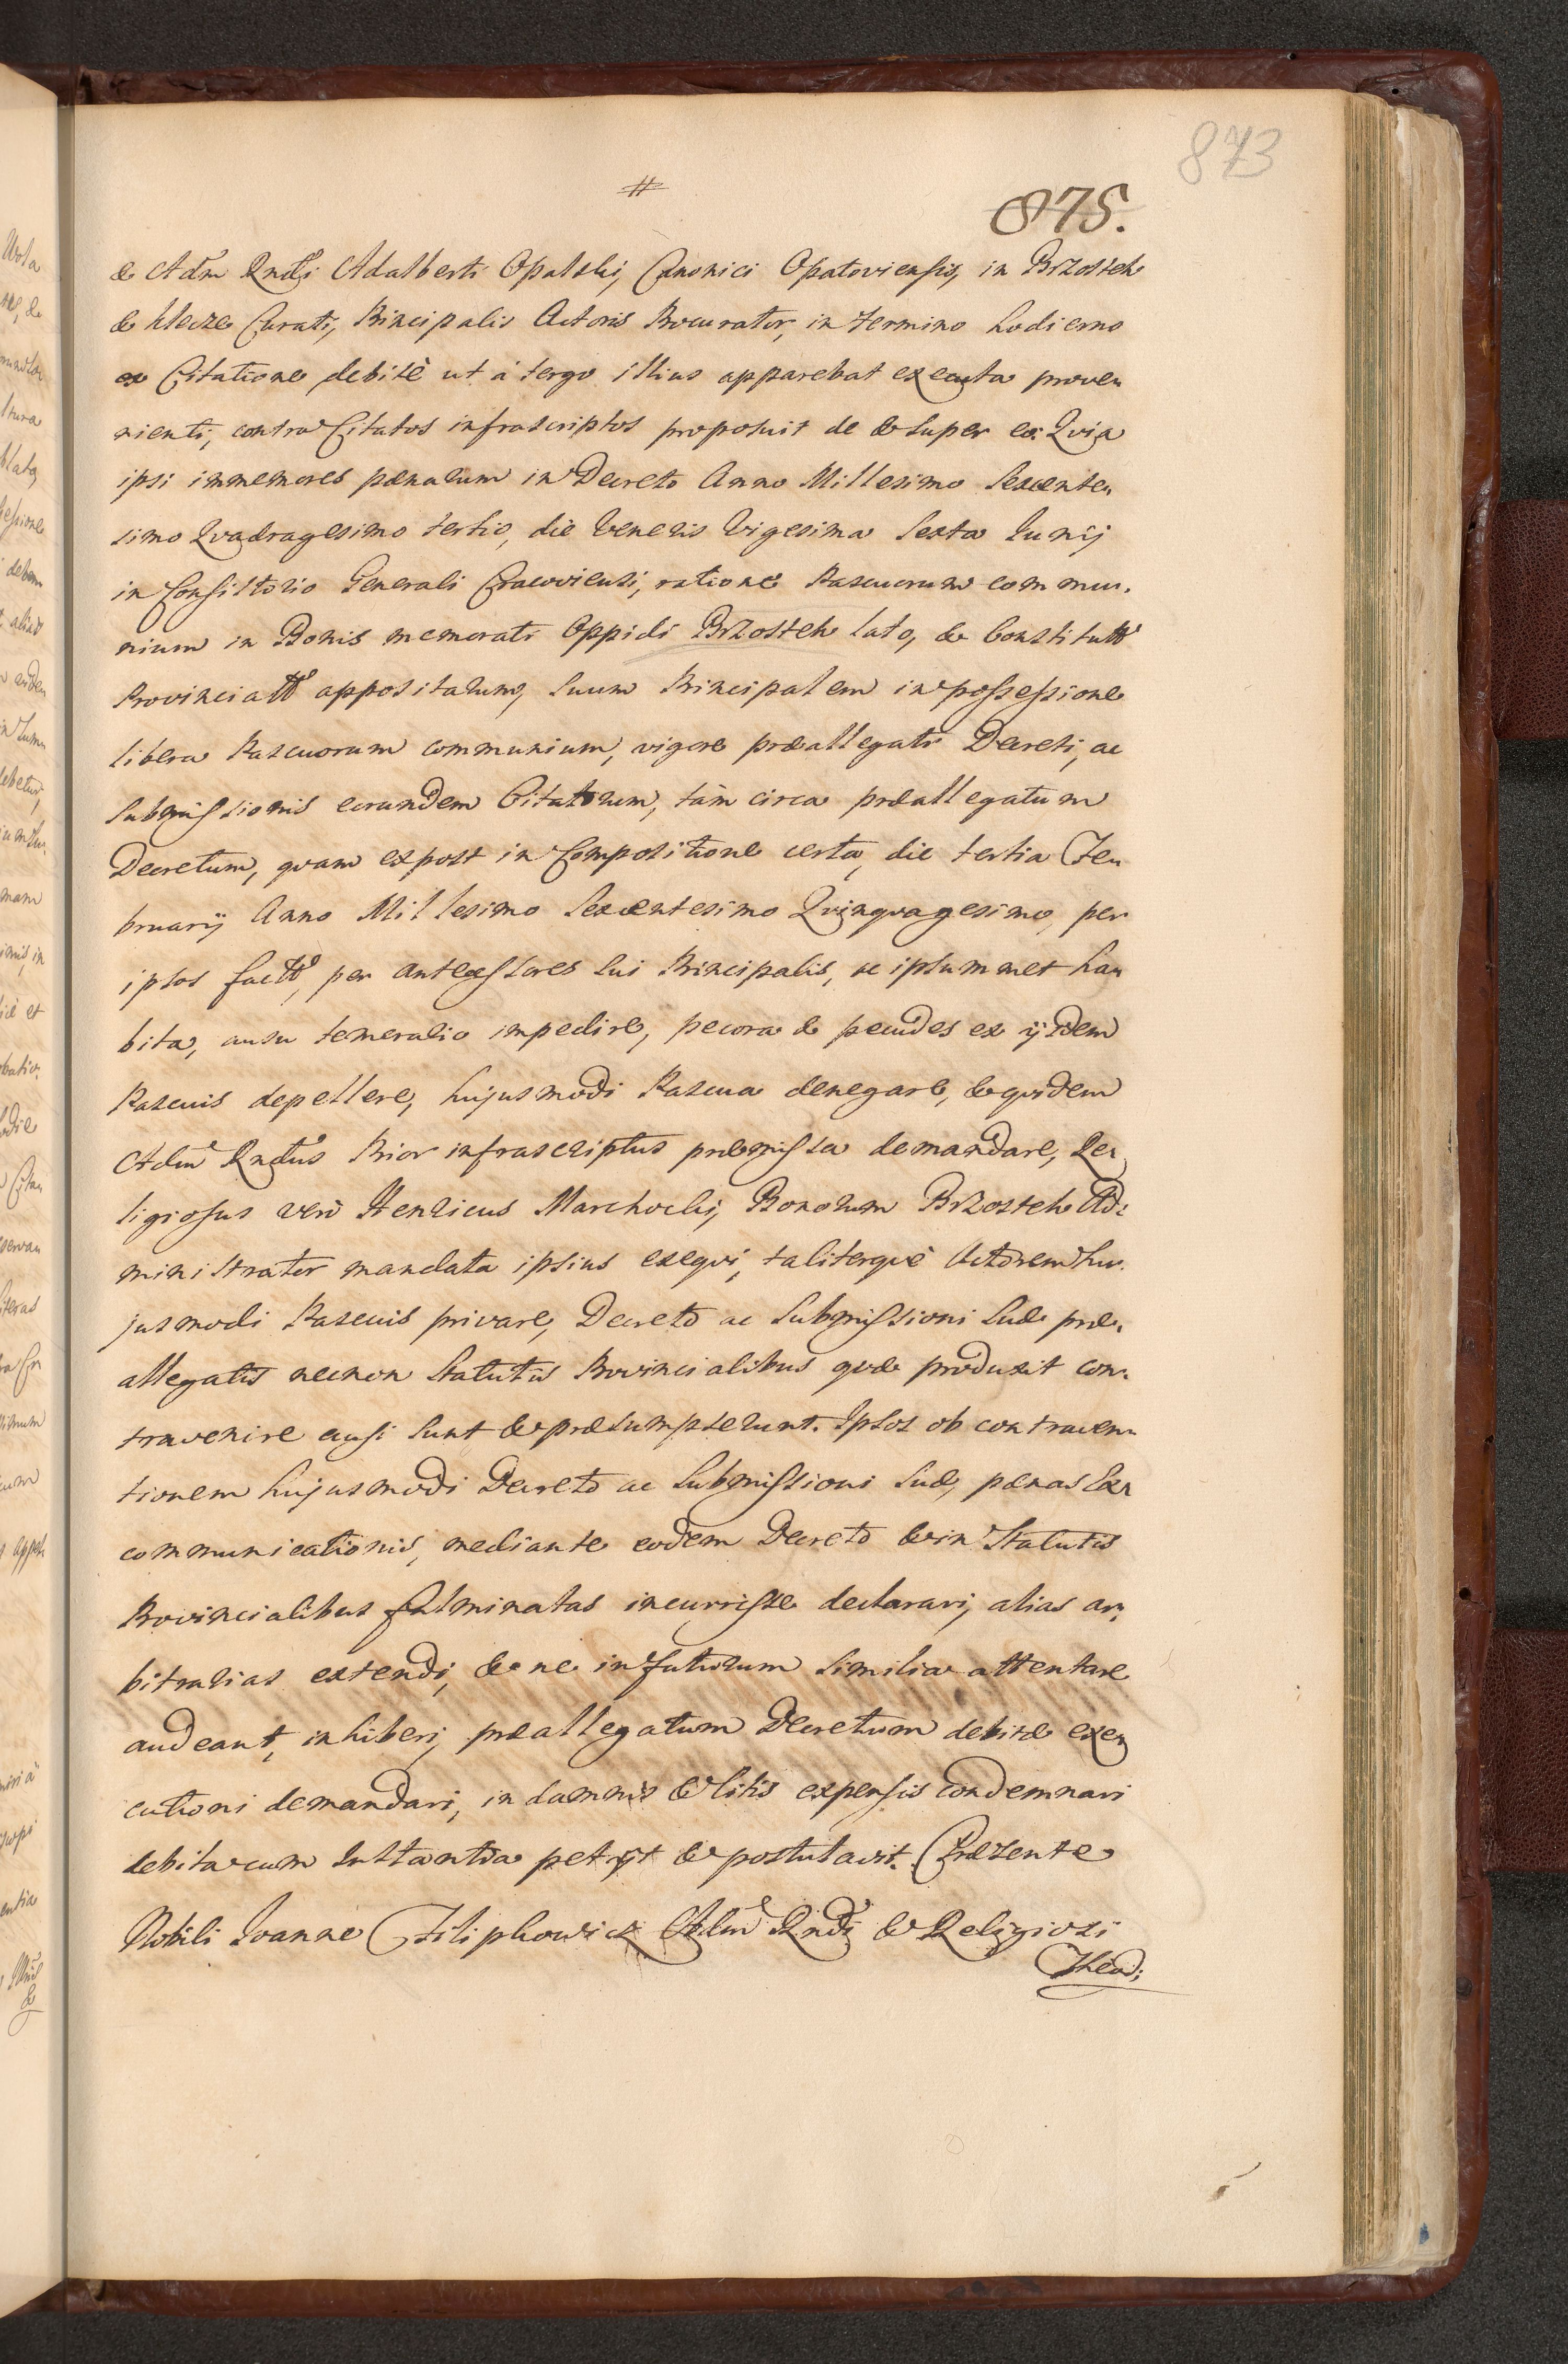 873
#
875.
& Adm Rndi Adalberti Opalski, Canonici Opatoviensis, in Brzostek
& Klecze Curati, Principalis Actoris Procurator, in termino hodierno
ex Citatione debitè ut à tergo illius apparebat executa prove„
nienti, contra Citatos infrascriptos proposuit de & super eo: Qvia
ipsi immemores pænarum in Decreto Anno Millesimo Sexcente„
simo Qvadragesimo tertio, die Veneris Vigesima Sexta Junij
in Consistorio Generali Cracoviensi, ratione Pascuorum commu„
nium in Bonis memorati Oppidi Brzostek lato, & Constitutt
Provinciatt appositarum, suum Principalem in possessione
libera Pascuorum communium, vigore præallegati Decreti, ac
submissionis eorundem Citatorum, tàm circa præallegatum
Decretum, qvam expost in Compositione certa, die tertia Fe„
bruarij Anno Millesimo Sexcentesimo Qvinqvagesimo, per
ipsos factt, per antecessores sui Principalis, ac ipsummet ha„
bita, ausu temerario impedire, pecora & pecudes ex ijsdem
Pascuis depellere, hujusmodi Pascua denegare, & qvidem
Adm Rndus Prior infrascriptus præmissa demandare, Re„
ligiosus verò Henricus Marchocki, Bonorum Brzostek Ad:
ministrator mandata ipsius exeqvi, taliterqve Actorem hu„
jusmodi Pascuis privare, Decreto ac Submissioni suæ præ„
allegatis necnon Statutis Provincialibus qvæ produxit con„
travenire ausi sunt & præsumpserunt. Ipsos ob contraven„
tionem hujusmodi Decreto ac Submissioni suæ, pænas Ex„
communicationis, mediante eodem Decreto & in Statutis
Provincialibus fulminatas incurrisse declarari, alias ar„
bitrarias extendi, & ne in futurum similia attentare
audeant, inhiberi, præallegatum Decretum debitæ exe„
cutioni demandari, in damnis & litis expensis condemnari
debita cum Instantia petijt & postulavit. Præsente
Nobili Joanne Filiphowicz Adm Rndi & Religiosi